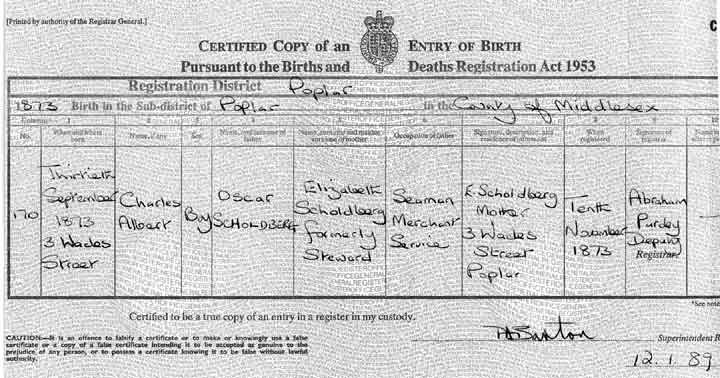 [Printed by authority of the Registrar General.]
C
CERTIFIED COPY of an ENTRY OF BIRTH
Pursuant to the Births and Deaths Registration Act 1953
Registration District Poplar
1873 Birth in the Sub-district of Poplar in the County of Middlesex
Columns:- 1 2 3 4 5 6 7 8 9 10
No. When and where born Name, if any Sex Name, and surname of father Name, surname and maiden surname of mother Occupation of father Signature, description, and residence of informant When registered Signature of registrar
170
Thirtieth
September
1873
3 Wades
Street
Charles
Albert
Boy
Oscar
SCHOLDBERG
Elizabeth
Scholdberg
formerly
Steward
Seaman
Merchant
Service
E. Scholdberg
Mother
3 Wades
Street
Poplar
Tenth
November
1873
Abraham
Purdey
Deputy
Registrar.
*See note
Certified to be a true copy of an entry in a register in my custody.
CAUTION:—It is an offence to falsify a certificate or to make or knowingly use a false
certificate or a copy of a false certificate intending it to be accepted as genuine to the
prejudice of any person, or to possess a certificate knowing it to be false without lawful
authority.
Superintendent R
12.1.89